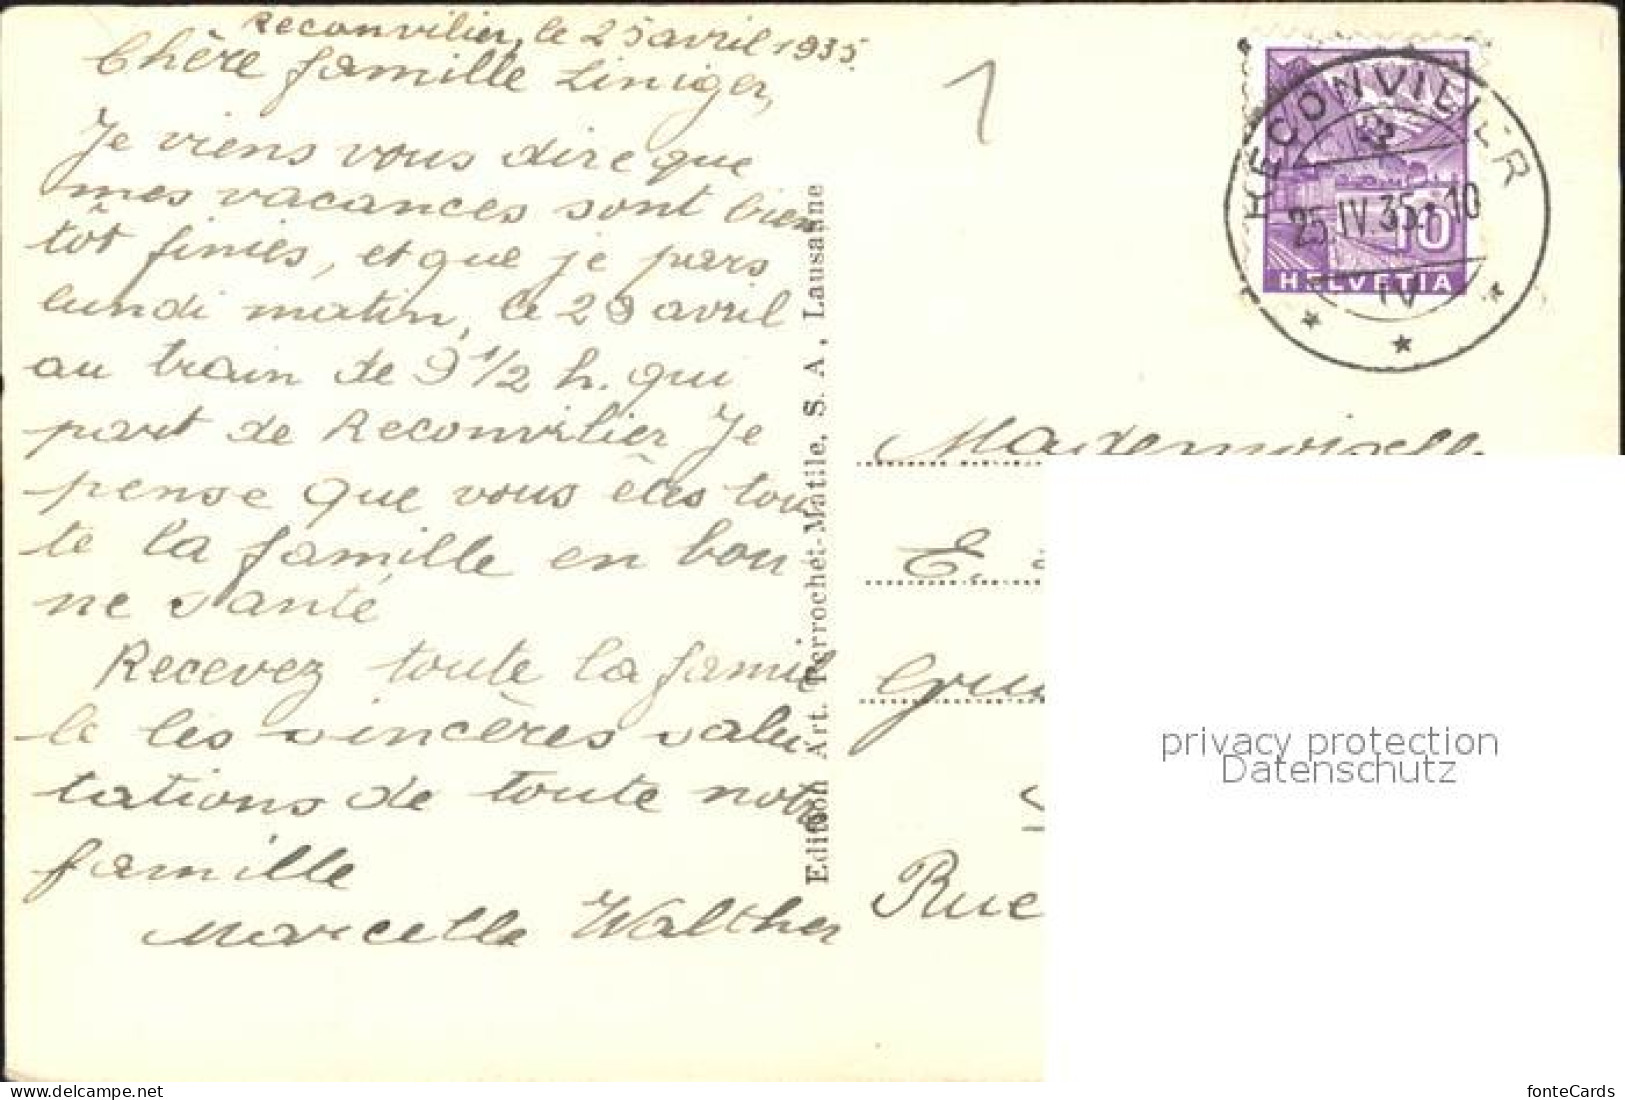 Reconvilier, le 25 avril 1935.
Chère famille Liniger,
Je viens vous dire que
mes vacances sont bien
tôt finies, et que je pars
lundi matin, le 29 avril
au train de 9 1/2 h. qui
part de Reconvilier Je
pense que vous êtes tou
te la famille en bon
ne santé
Recevez toute la famil
le les sincères salu-
tations de toute notre
famille
Marcelle Walther
Edition Art. Perrochet-Matile, S. A., Lausanne
1
RECONVILIER
25.IV.35.-10
IV
10
HELVETIA
Mademoiselle
E.
Rue
privacy protection
Datenschutz
fonteCards